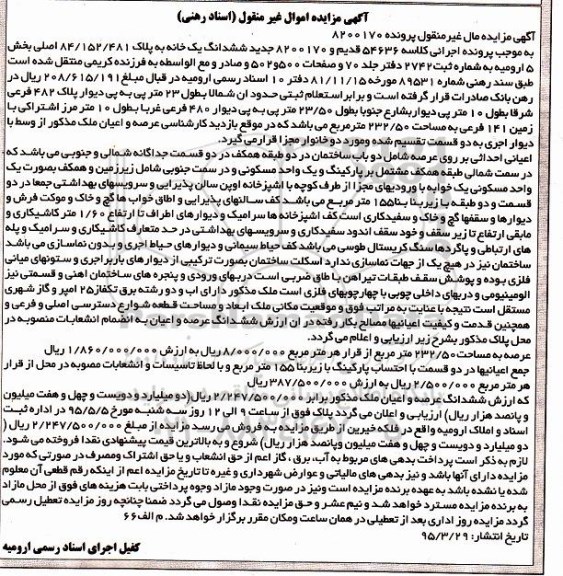 آگهی مزایده اموال غیر منقول (اسناد رهنی)
آگهی مزایده مال غیرمنقول پرونده ۸۲۰۰۱۷۰
به موجب پرونده اجرائی کلاسه ۵۴۶۳۶ قدیم و ۸۲۰۰۱۷۰ جدید ششدانگ یک خانه به پلاک ۸۴/۱۵۲/۴۸۱ اصلی بخش
۵ ارومیه به شماره ثبت ۲۷۴۲ دفتر جلد ۷۰ و صفحات ۵۰۰و ۵۰۲ و صادر و مع الواسطه به فرزنده کریمی منتقل شده است
طبق سند رهنی شماره ۸۹۵۳۱ مورخه ۸۱/۱۱/۱۵ دفتر ۱۰ اسناد رسمی ارومیه در قبال مبلغ ۲۰۸/۶۱۵/۱۹۱ ریال در
رهن بانک صادرات قرار گرفته است و برابر استعلام ثبتی حدود ان شمالا بطول ۲۳ متر پی به پی دیوار پلاک ۴۸۲ فرعی
شرقا بطول ۱۰ متر پی دیوار بشارع جنوبا بطول ۲۳/۵۰ متر پی به پی دیوار ۴۸۰ فرعی غربا بطول ۱۰ متر مرز اشتراکی با
زمین ۱۴۱ فرعی به مساحت ۲۳۲/۵۰ مترمربع می باشد که در موقع بازدید کارشناسی عرصه و اعیان ملک مذکور از وسط با
دیوار اجری به دو قسمت تقسیم شده ومورد دو خانوار مجزا قرار می گیرد.
اعیانی احداثی بر روی عرصه شامل دو باب ساختمان در دو طبقه همکف در دو قسمت جداگانه شمالی و جنوبی می باشد که
در سمت شمالی طبقه همکف مشتمل بر پارکینگ و یک واحد مسکونی و در سمت جنوبی شامل زیرزمین و همکف بصورت یک
واحد مسکونی یک خوابه با ورودیهای مجزا از طرف کوچه با اشپزخانه اوپن سالن پذیرایی و سرویسهای بهداشتی جمعا در دو
قسمت و دو طبقه با زیربنا بنا۱۵۵ متر مربع می باشد کف سالنهای پذیرایی و اطاق خواب ها گچ و خاک و موکت فرش و
دیوارها و سقفها گچ و خاک و سفیدکاری است کف اشپزخانه ها سرامیک و دیوارهای اطراف تا ارتفاع ۱/۶۰ متر کاشیکاری و
مابقی ارتفاع تا زیر سقف و خود سقف اندود سفیدکاری و سرویسهای بهداشتی در حد متعارف کاشیکاری و سرامیک و پله
های ارتباطی و پاگردها سنگ کریستال طوسی می باشد کف حیاط سیمانی و دیوارهای حیاط اجری و بدون نماسازی می باشد
ساختمان نیز در هیچ یک از جهات نماسازی ندارد اسکلت ساختمان بصورت ترکیبی از دیوارهای باربر اجری و ستونهای میانی
فلزی بوده و پوشش سقف طبقات تیراهن با طاق ضربی است دربهای ورودی و پنجره های ساختمان اهنی و قسمتی نیز
الومینیومی و دربهای داخلی چوبی با چهارچوبهای فلزی است ملک مذکور دارای اب و دو رشته برق تکفاز ۲۵ امپر و گاز شهری
مستقل است نتیجه با عنایت به مراتب فوق و موقعیت مکانی ملک ابعاد و مساحت قطعه شوارع دسترسی اصلی و فرعی و
همچنین قدمت و کیفیت اعیانیها مصالح بکار رفته در ان ارزش ششدانگ عرصه و اعیان به انضمام انشعابات منصوبه در
محل پلاک مذکور بشرح زیر ارزیابی و اعلام می گردد.
عرصه به مساحت ۲۳۲/۵۰ متر مربع از قرار هر متر مربع ۸/۰۰۰/۰۰۰ ریال به ارزش ۱/۸۶۰/۰۰۰/۰۰۰ ریال
جمع اعیانیها در دو قسمت با احتساب پارکینگ با زیربنا ۱۵۵ متر مربع و با لحاظ تاسیسات و انشعابات مصوبه در محل از قرار
هر متر مربع ۲/۵۰۰/۰۰۰ ریال به ارزش ۳۸۷/۵۰۰/۰۰۰ ریال
که ارزش ششدانگ عرصه و اعیان ملک مذکور برابر ۲/۲۴۷/۵۰۰/۰۰۰ ریال (دو میلیارد و دویست و چهل و هفت میلیون
و پانصد هزار ریال) ارزیابی و اعلان می گردد پلاک فوق از ساعت ۹ الی ۱۲ روز سه شنبه مورخ ۹۵/۵/۵ در اداره ثبت
اسناد و املاک ارومیه واقع در فلکه خیرین از طریق مزایده به فروش می رسد مزایده از مبلغ ۲/۲۴۷/۵۰۰/۰۰۰ ریال (
دو میلیارد و دویست و چهل و هفت میلیون وپانصد هزار ریال) شروع و به بالاترین قیمت پیشنهادی نقدا فروخته می شود.
لازم به ذکر است پرداخت بدهی های مربوط به آب، برق ، گاز اعم از حق انشعاب و یا حق اشتراک ومصرف در صورتی که مورد
مزایده دارای آنها باشد و نیز بدهی های مالیاتی و عوارض شهرداری و غیره تا تاریخ مزایده اعم از اینکه رقم قطعی آن معلوم
شده یا نشده باشد به عهده برنده مزایده است ونیز در صورت وجود مازاد وجوه پرداختی بابت هزینه های فوق از محل مازاد
به برنده مزایده مسترد خواهد شد و نیم عشر و حق مزایده نقدا وصول می گردد ضمنا چنانچه روز مزایده تعطیل رسمی
گردد مزایده روز اداری بعد از تعطیلی در همان ساعت ومکان مقرر برگزار خواهد شد. م الف۶۶
تاریخ انتشار: ۹۵/۳/۲۹
کفیل اجرای اسناد رسمی ارومیه